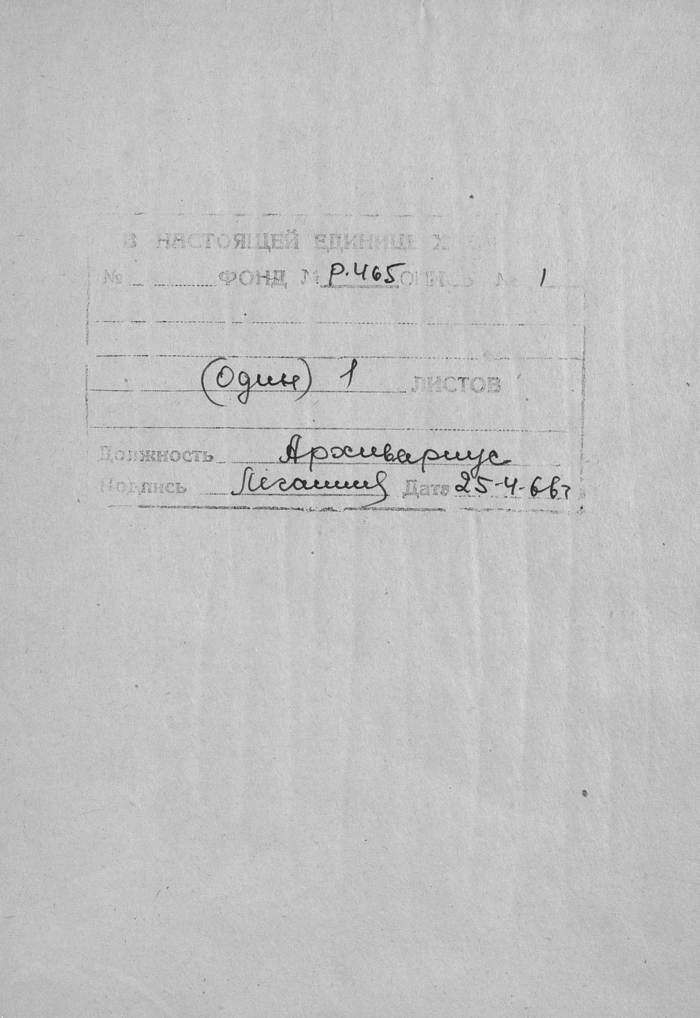 В НАСТОЯЩЕЙ ЕДИНИЦЕ
№ ФОНД № р.465 № 1
(Один) 1 ЛИСТОВ
Должность Архивариус
Подпись Дата 25-4-66г